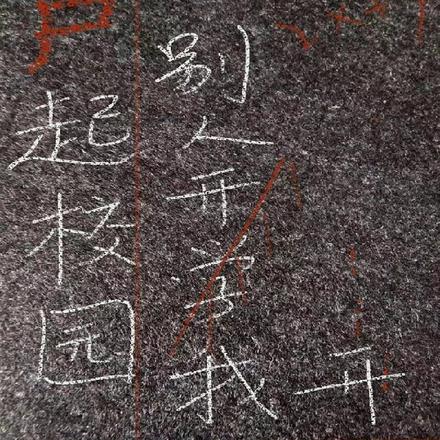 起校园
别人开学我
开